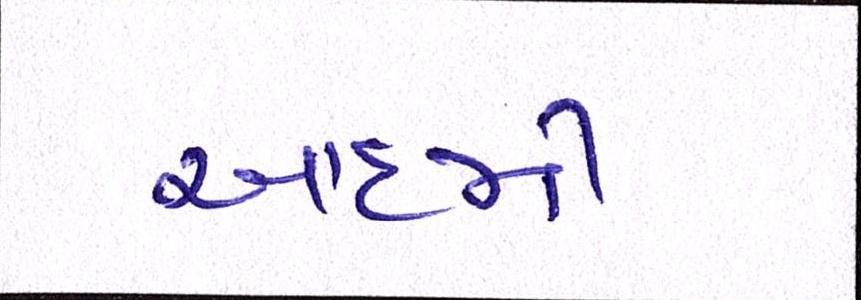 આદમી